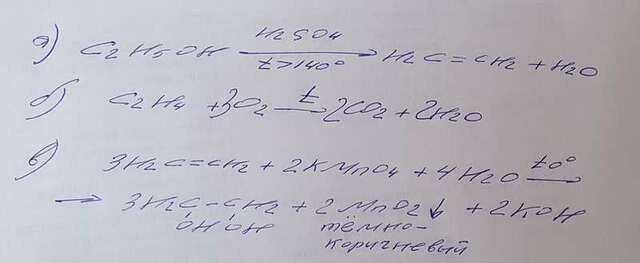 а) C2H5OH H2SO4 t>140° → H2C=CH2+H2O
б) C2H4 +3O2 t → 2CO2+2H2O
в) 3H2C=CH2+2KMnO4+4H2O t0° →
→ 3H2C-CH2+2MnO2↓+2KOH
OH OH тёмно-
коричневый